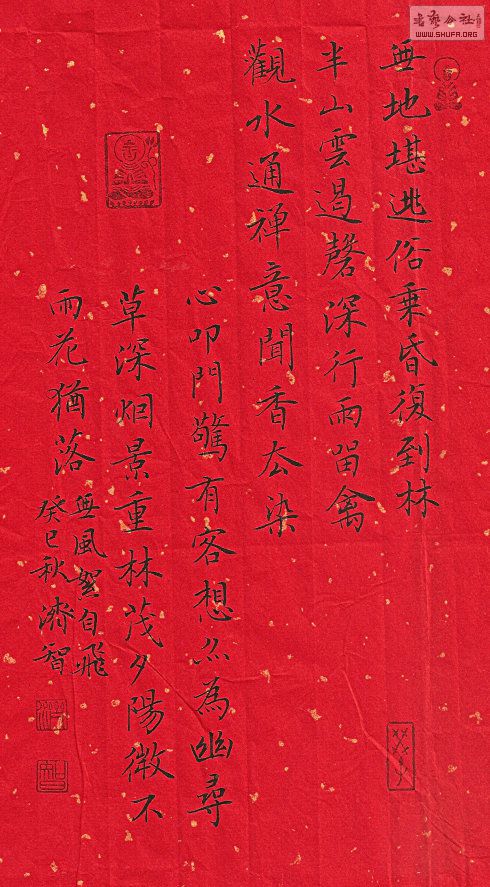 書藝公社
WWW.SHUFA.ORG
無地堪逃俗乗昏復到林
半山雲遏磬深行雨留禽
觀水通禅意聞香去染
心叩門驚有客想亦為幽尋
草深烟景重林茂夕陽微不
雨花猶落
無風絮自飛
癸巳秋濟智